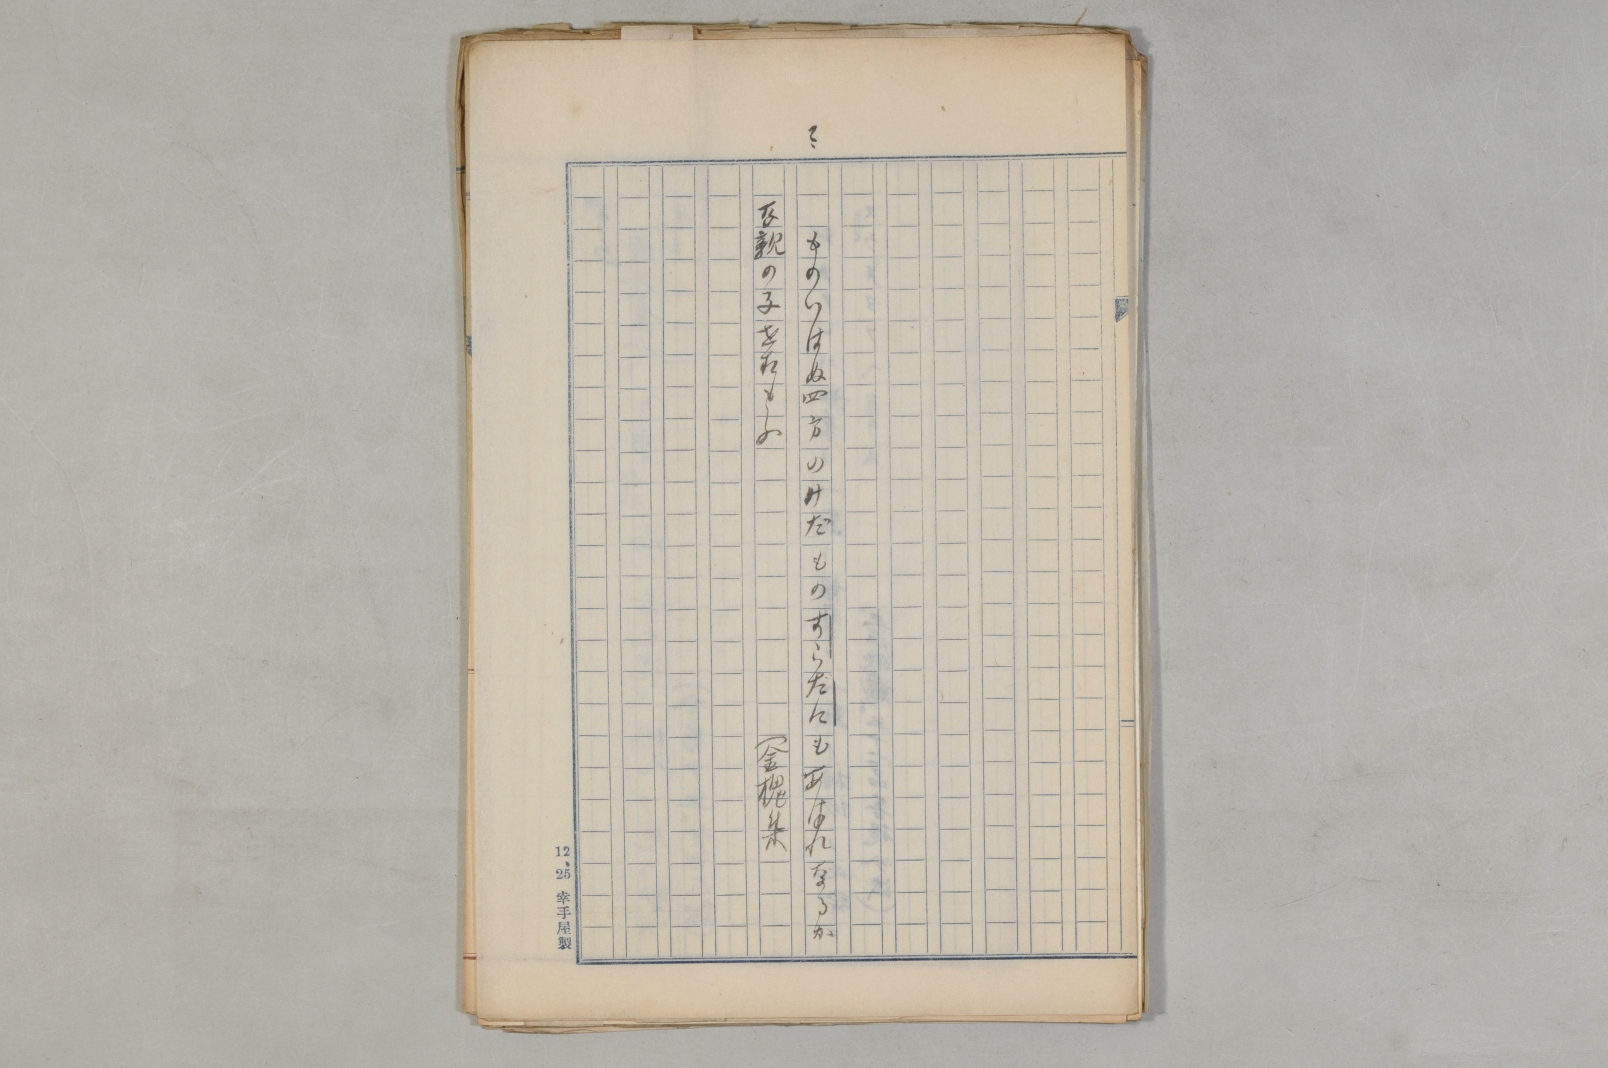 ものいはぬ四方のけだものすらだにもあはれなるか
な親の子をおもふ
(金槐集
12、25 幸手屋製